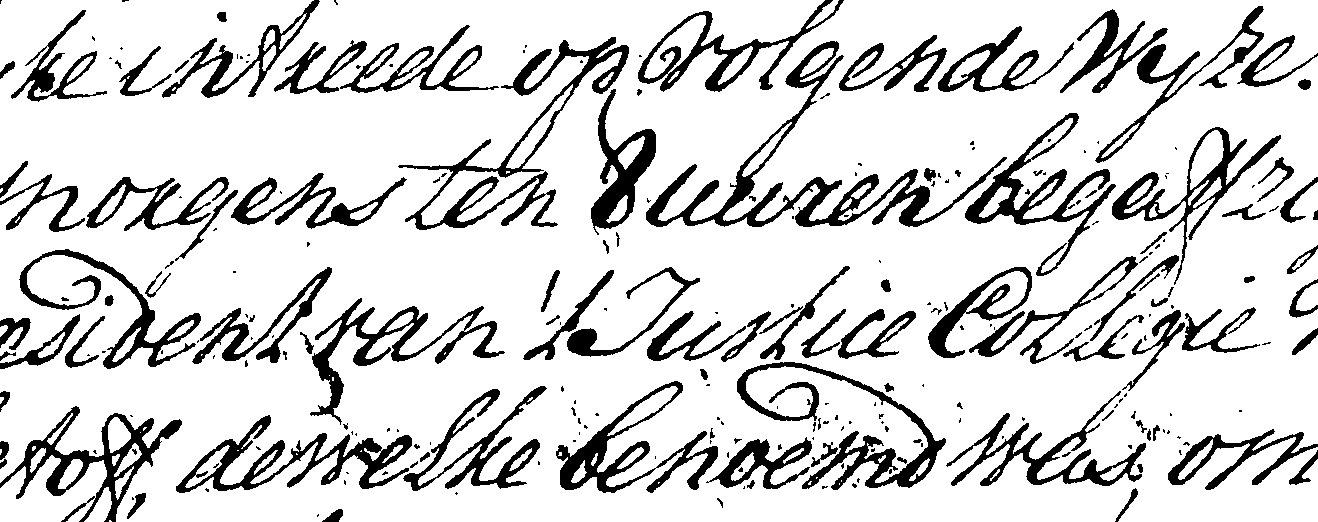 ke intreede op volgende Wyze.
morgens ten 8 uuren begaff zi
esident van 't Justice Collegie
toff, dewelke benoemd was, om